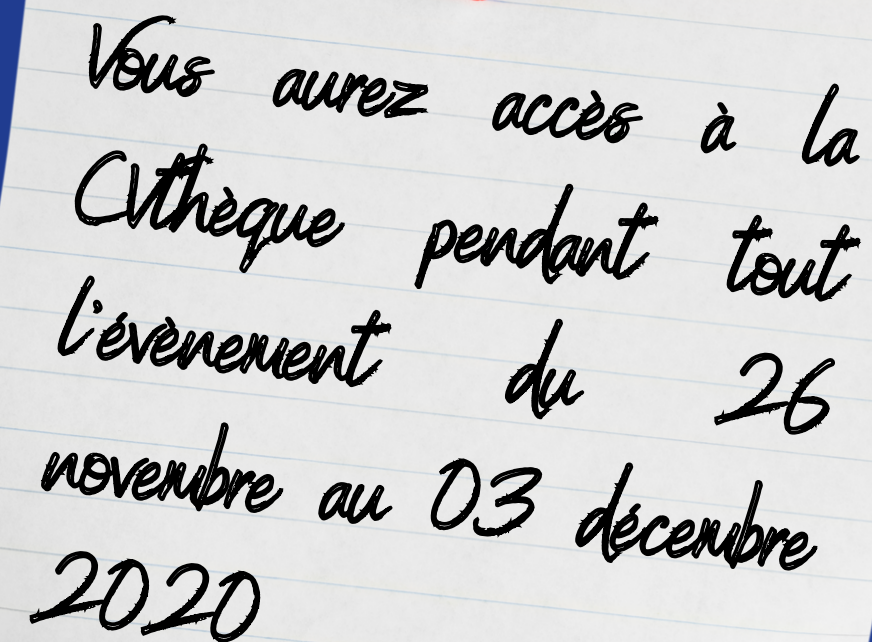 Vous aurez accès à la
CVthèque pendant tout
l'évènement du 26
novembre au 03 décembre
2020